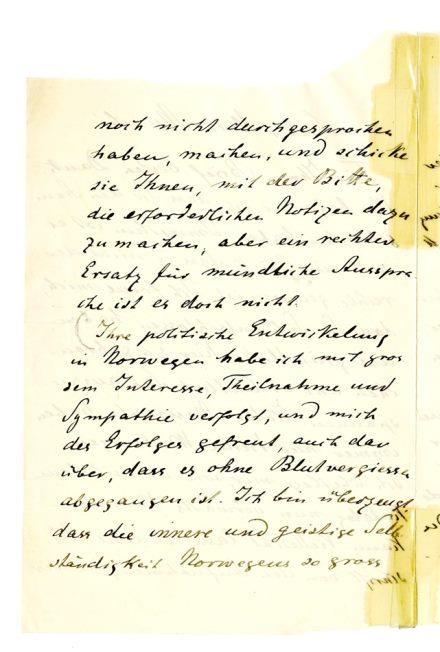 noch nicht durchgesprochen
haben, machen, und schicke
sie Ihnen, mit der Bitte,
die erforderlichen Notizen dazu
zu machen, aber ein rechter
Ersatz für mündliche Ausspra-
che ist es doch nicht.
(Ihre politische Entwickelung
in Norwegen habe ich mit gros
sem Interesse, Theilnahme und
Sympathie verfolgt, und mich
des Erfolges gefreut, auch dar
über, dass es ohne Blutvergiessen
abgegangen ist. Ich bin überzeugt,
dass die innere und geistige Selb
ständigkeit Norwegens so gross